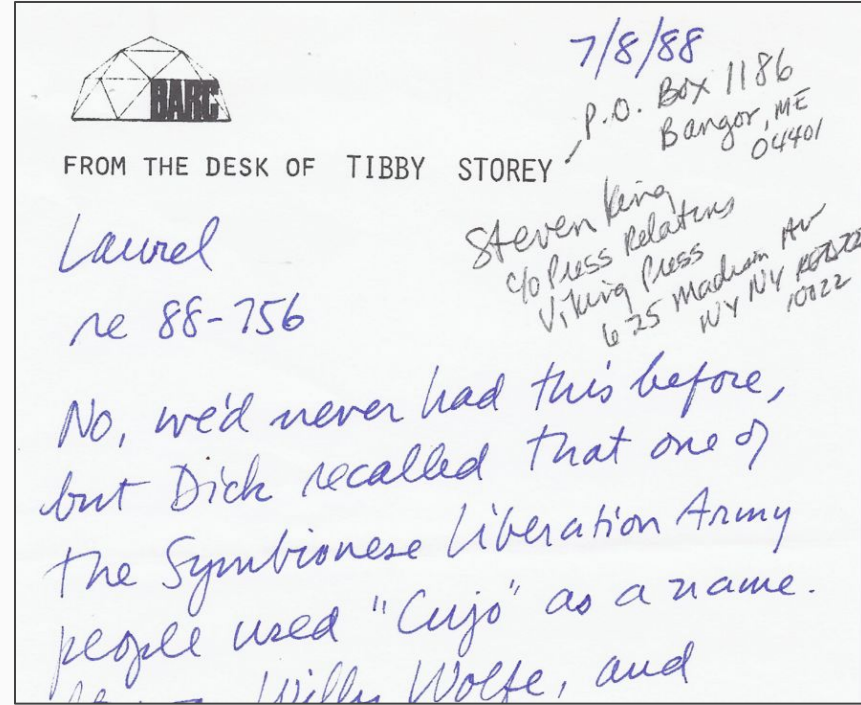 7/8/88
BARC
FROM THE DESK OF TIBBY STOREY
P.O. Box 1186
Bangor, ME
04401
Steven King
c/o Press Relations
Viking Press
625 Madison Av
NY NY
10022
Laurel
re 88-756
No, we'd never had this before,
but Dick recalled that one of
the Symbionese Liberation Army
people used "Cujo" as a name.
Willy Wolfe, and